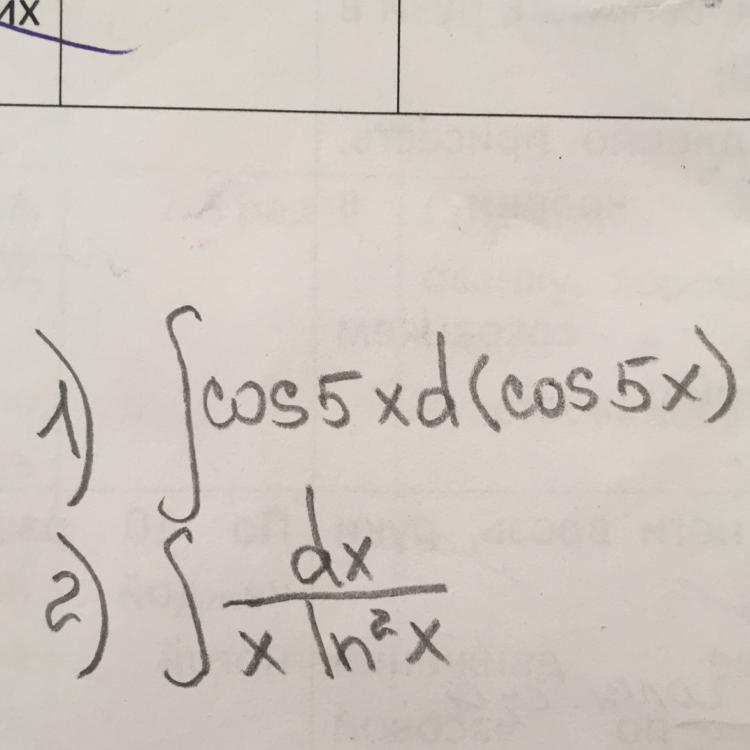 1) ∫cos5xd(cos5x)
2) ∫ dx / (x ln²x)